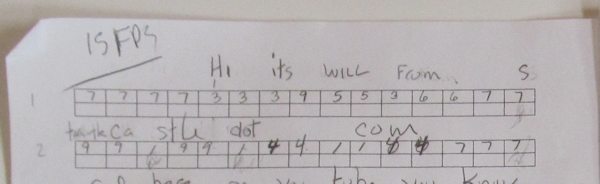 15 FPS
Hi its WILL From S
1 7 7 7 7 3 3 3 9 5 5 3 6 6 7 7
tankca stle dot com
2 9 9 1 9 9 1 4 4 1 1 4 4 7 7 7